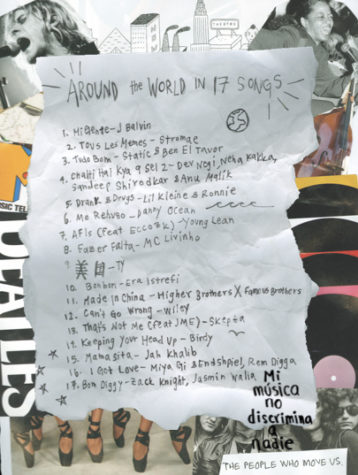 THEATRE
AROUND the WORLD IN 17 SONGS
1. Mi Gente - J Balvin
2. Tous Les Memes - Stromae
3. Tudo Bom - Static & Ben El Tavor
4. Chalti Hai Kya 9 Se 12 - Dev Negi, Neha Kakkar,
Sandeep Shirodkar & Anu Malik
5. Drank & Drugs - Lil Kleine & Ronnie
6. Me Rehuso - Danny Ocean
7. AF1s (feat Ecco2k) - Young Lean
8. Fazer Falta - MC Livinho
9. 美 - TY
10. Bonbon - Era Istrefi
11. Made in China - Higher Brothers X Famous Brothers
12. Can't Go Wrong - Wiley
13. That's Not Me (feat JME) - Skepta
14. Keeping Your Head Up - Birdy
15. Mamasita - Jah Khalib
16. I Got Love - Miya Gi & Endshpiel, Rem Digga
17. Bom Diggy - Zack Knight, Jasmin Walia
MUSIC TEL
BEATLES
Mi
música
no
discrimina
a
nadie
THE PEOPLE WHO MOVE US.